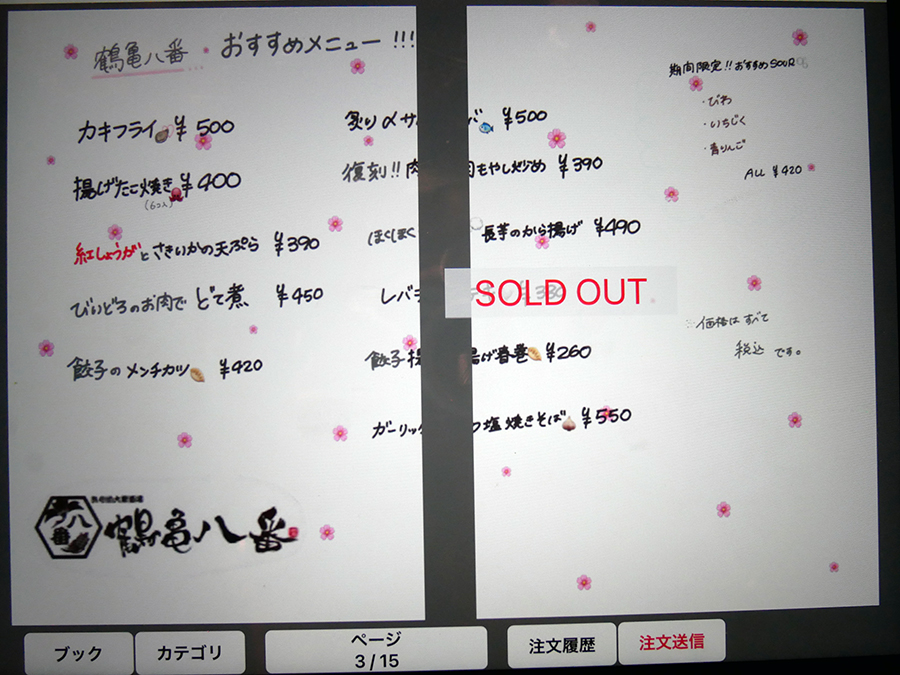 鶴亀八番 おすすめメニュー!!!
カキフライ ¥500
揚げたこ焼き ¥400
(6コ入)
紅しょうがとさきいかの天ぷら ¥390
びいどろのお肉で どて煮 ¥450
餃子のメンチカツ ¥420
炙り〆サバ ¥500
復刻!!肉もやし炒め ¥390
ほくほく 長芋のから揚げ ¥490
レバ
SOLD OUT
餃子 揚げ春巻 ¥260
ガーリック 塩焼きそば ¥550
期間限定!!おすすめSOUR
・びわ
・いちじく
・青りんご
ALL ¥420
価格はすべて
税込です。
八番
鶴亀八番
ブック
カテゴリ
ページ
3 / 15
注文履歴
注文送信